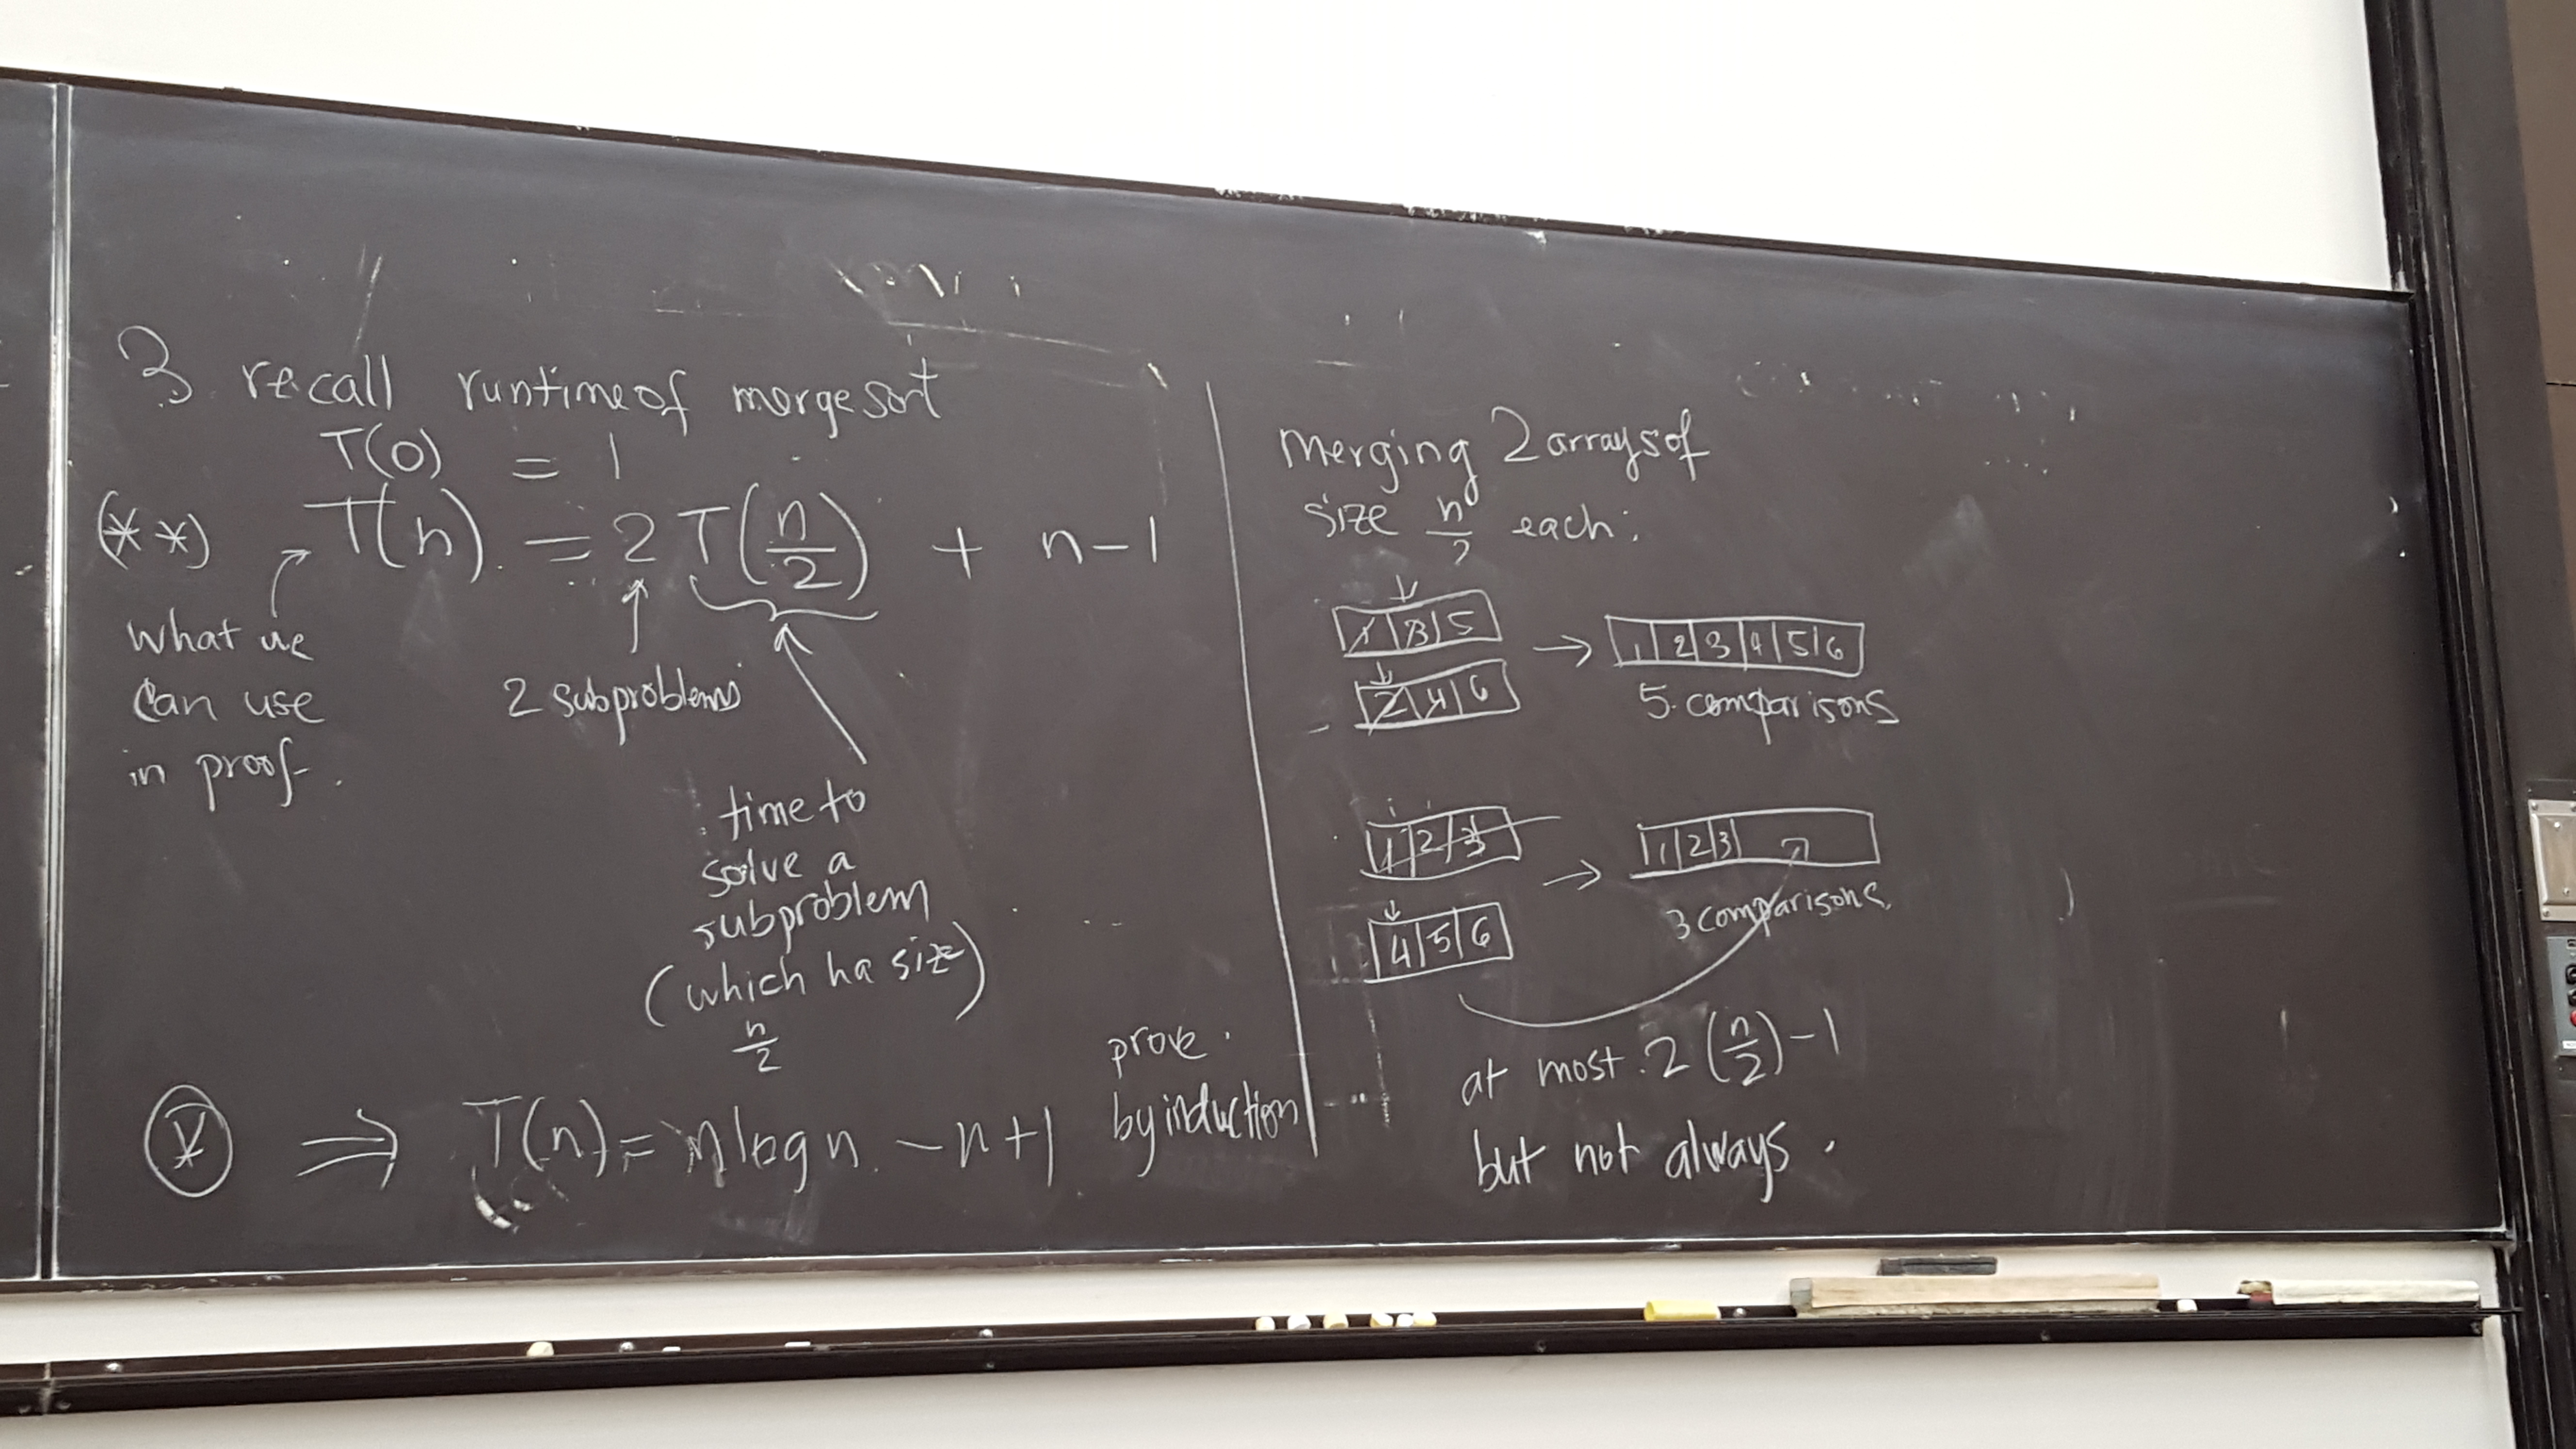 3. recall runtime of merge sort
T(0) = 1
(**) T(n) = 2 T(n/2) + n-1
What we
can use
in proof.
2 subproblems
time to
solve a
subproblem
(which ha size)
n/2
⊛ ⇒ T(n) = n log n - n + 1
prove
by induction
merging 2 arrays of
size n/2 each:
1 | 3 | 5
2 | 4 | 6
→ 1 | 2 | 3 | 4 | 5 | 6
5 comparisons
1 | 2 | 3
4 | 5 | 6
→ 1 | 2 | 3
3 comparisons.
at most 2(n/2)-1
but not always.